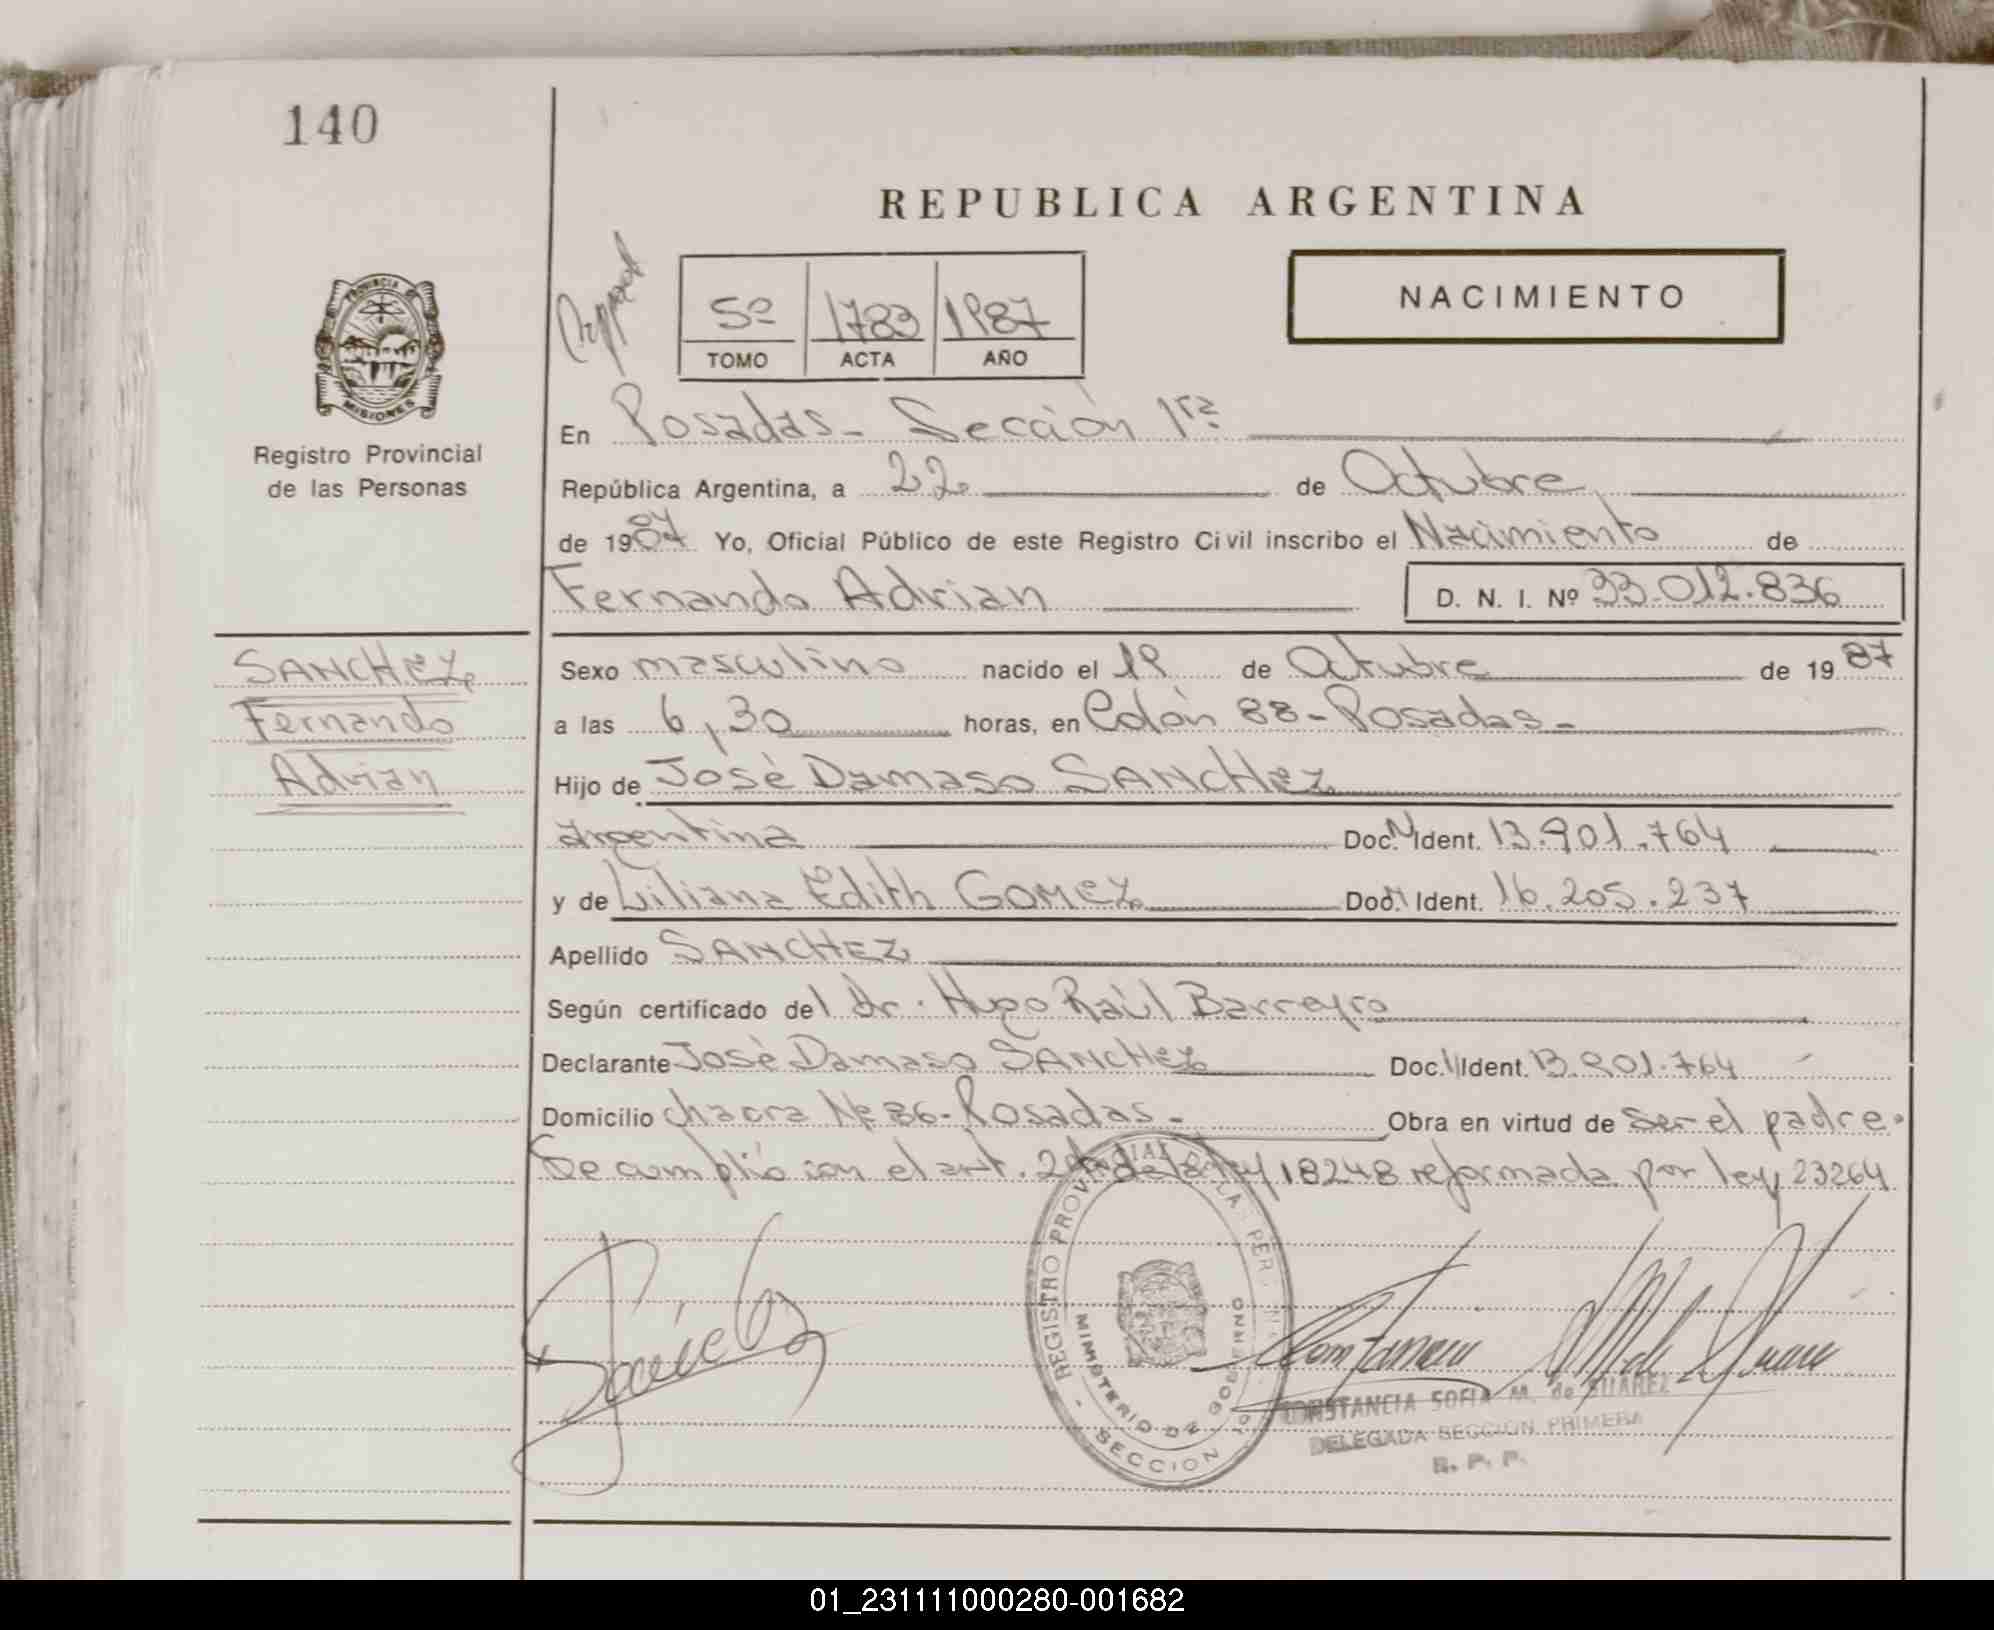 140
REPUBLICA ARGENTINA
5º 1783 1987
TOMO ACTA AÑO
NACIMIENTO
PROVINCIA DE
MISIONES
Registro Provincial
de las Personas
En Posadas - Sección 1ra
República Argentina, a 22 de Octubre
de 1987 Yo, Oficial Público de este Registro Civil inscribo el Nacimiento de
Fernando Adrian D. N. I. Nº 33.012.836
SANCHEZ
Fernando
Adrian
Sexo masculino nacido el 19 de Octubre de 1987
a las 6,30 horas, en Colón 88 - Posadas -
Hijo de José Damaso SANCHEZ
argentina Doc. N Ident. 13.901.764
y de Liliana Edith GOMEZ Doc. N Ident. 16.205.237
Apellido SANCHEZ
Según certificado del Dr. Hugo Raúl Barreyro
Declarante José Damaso SANCHEZ Doc. N Ident. 13.901.764
Domicilio chacra Nº 86 - Posadas - Obra en virtud de ser el padre.
Se cumplió con el art. 2do de la ley 18248 reformada por ley 23264
REGISTRO PROVINCIAL DE LAS PERSONAS
MINISTERIO DE GOBIERNO
SECCION
CONSTANCIA SOFIA M. de SUAREZ
DELEGADA SECCION PRIMERA
R. P. P.
01_231111000280-001682